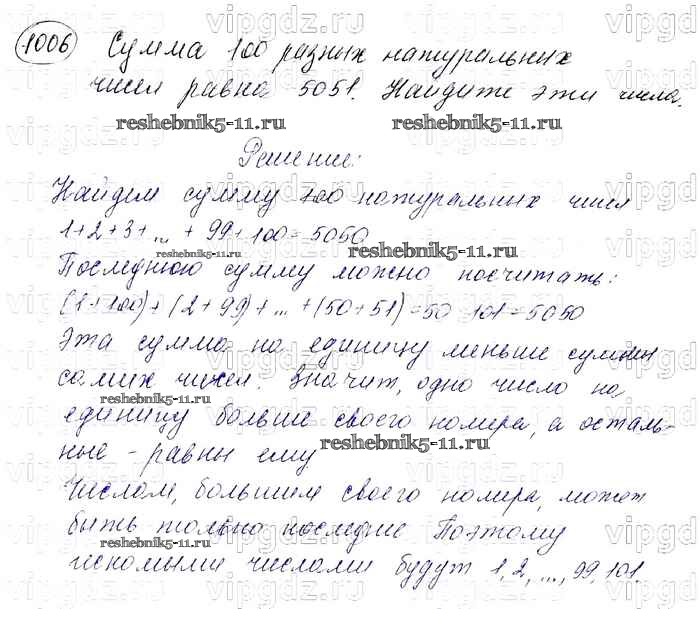 1006 Сумма 100 разных натуральных
чисел равна 5051. Найдите эти числа.
reshebnik5-11.ru reshebnik5-11.ru
Решение:
Найдем сумму 100 натуральных чисел
1+2+3+...+99+100=5050
reshebnik5-11.ru
Последнюю сумму можно посчитать:
(1+100)+(2+99)+...+(50+51)=50·101=5050
Эта сумма на единицу меньше суммы
самих чисел. Значит, одно число на
reshebnik5-11.ru
единицу больше своего номера, а осталь-
ные - равны ему
reshebnik5-11.ru
Числом, большим своего номера, может
быть только последнее Поэтому
reshebnik5-11.ru
искомыми числами будут 1, 2, ..., 99, 101.
vipgdz.ru